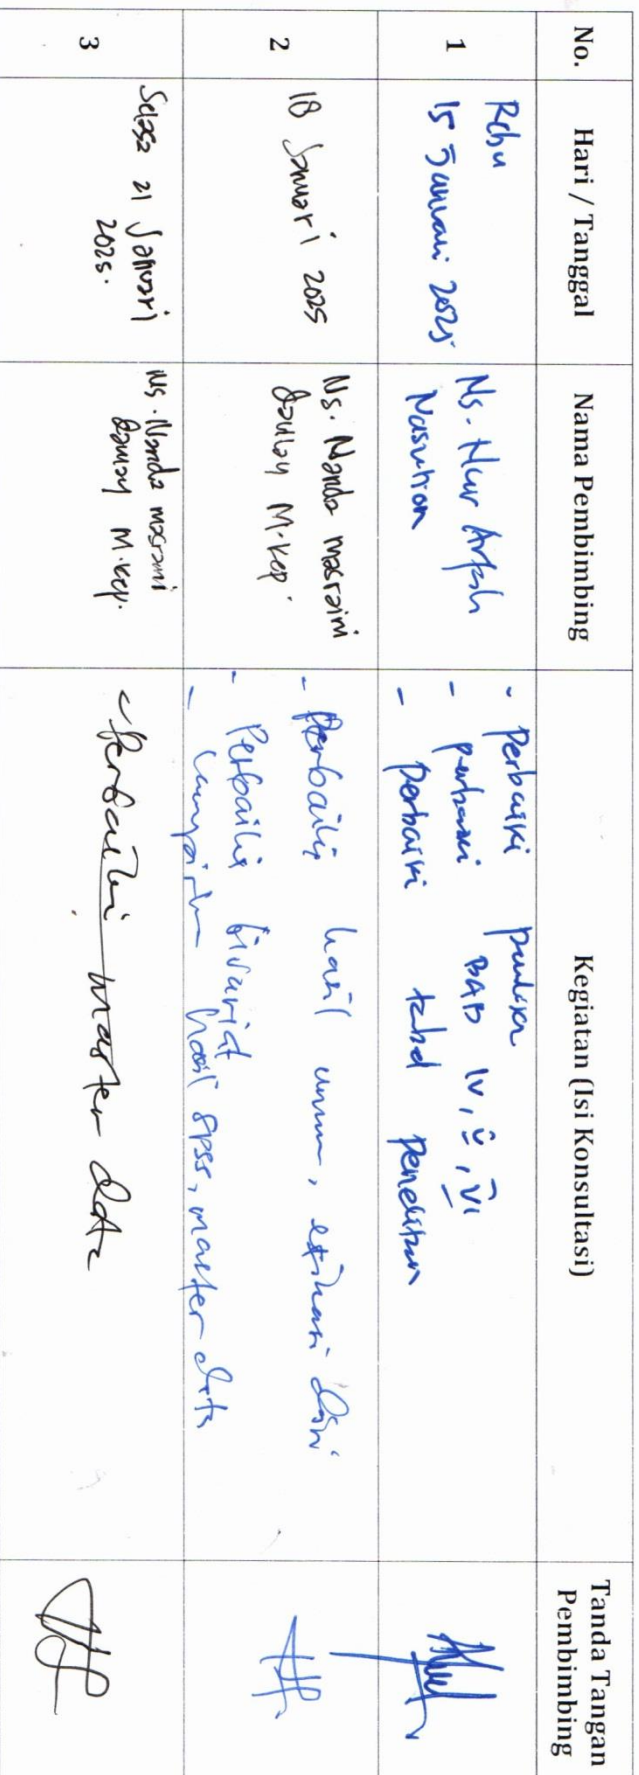 No.
Hari / Tanggal
Nama Pembimbing
Kegiatan (Isi Konsultasi)
Tanda Tangan
Pembimbing
1
Rabu
15 Januari 2025
Ns. Nur Arfah
Nasution
- Perbaiki
- perbaiki BAB IV, V, VI
- Perbaiki tabel penelitian
2
18 Januari 2025
Ns. Nanda masraini
Daulay M.Kep.
- Perbaiki hasil umum,
- Perbaiki bivariat
- Lampirkan hasil spss, master data
3
Selasa 21 Januari
2025.
Ns. Nanda masraini
Daulay M.Kep.
- Perbaiki master data